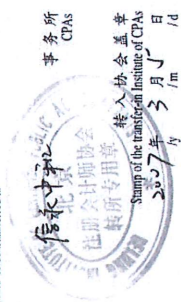 信永中和 事务所
CPAs
北京
注册会计师协会
转所专用章
转入协会盖章
Stamp of the transfer-in Institute of CPAs
2007年3月15日
/y /m /d